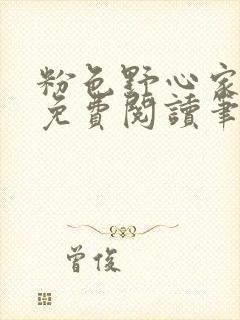 粉色野心家
免費閱讀筆
曾俊